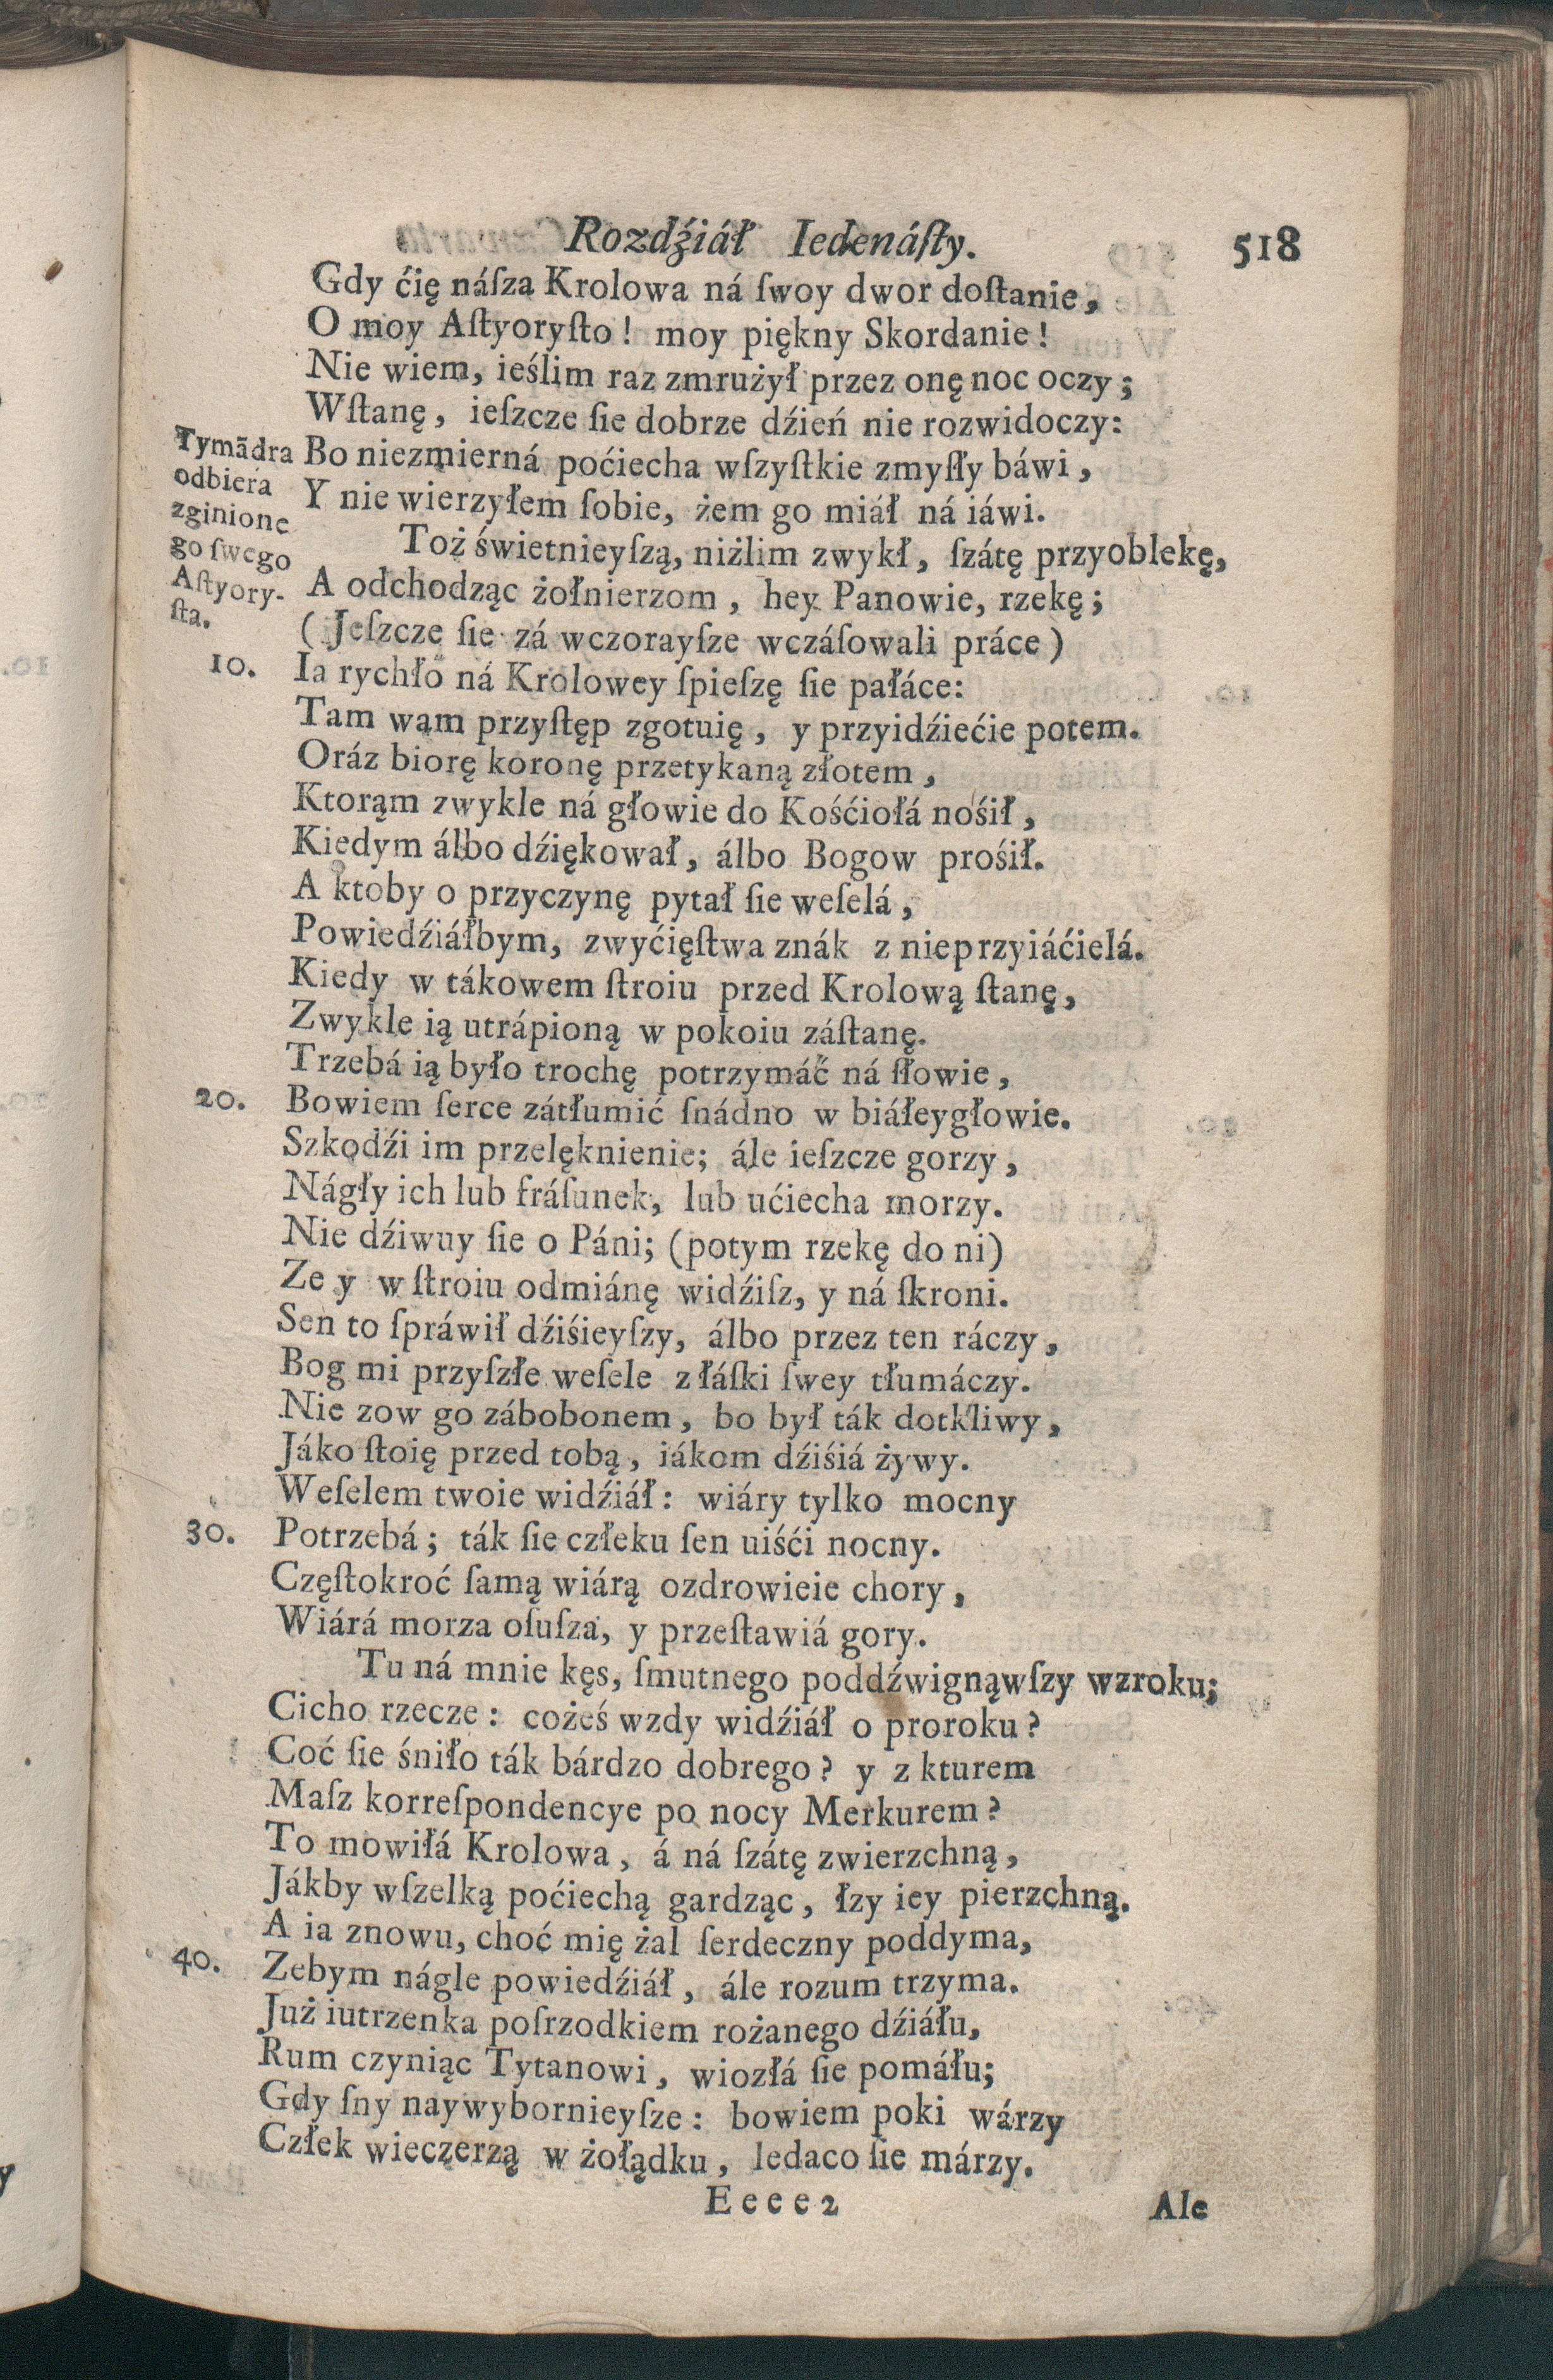 Rozdźiáł Iedenáſty. 518
Gdy ćię náſza Krolowa ná ſwoy dwor doſtanie,
O moy Aſtyoryſto! moy piękny Skordanie!
Nie wiem, ieślim raz zmrużył przez onę noc oczy;
Wſtanę, ieſzcze ſie dobrze dźień nie rozwidoczy:
Tymādra
odbiera
zginione
go ſwego
Aſtyory-
ſta.
Bo niezmierná poćiecha wſzyſtkie zmyſły báwi,
Y nie wierzyłem ſobie, żem go miáł ná iáwi.
Toż świetnieyſzą, niżlim zwykł, ſzátę przyoblekę,
A odchodząc żołnierzom, hey Panowie, rzekę;
(Jeſzcze ſie zá wczorayſze wczáſowali práce)
10. Ia rychło ná Krolowey ſpieſzę ſie pałáce:
Tam wam przyſtęp zgotuię, y przyidźiećie potem.
Oráz biorę koronę przetykaną złotem,
Ktorąm zwykle ná głowie do Kośćiołá nośił,
Kiedym álbo dźiękował, álbo Bogow prośił.
A ktoby o przyczynę pytał ſie weſelá,
Powiedźiáłbym, zwyćięſtwa znák z nieprzyiáćielá.
Kiedy w tákowem ſtroiu przed Krolową ſtanę,
Zwykle ią utrápioną w pokoiu záſtanę.
Trzebá ią było trochę potrzymáć ná ſłowie,
20. Bowiem ſerce zátłumić ſnádno w biáłeygłowie.
Szkodźi im przelęknienie; ále ieſzcze gorzy,
Nágły ich lub fráſunek, lub ućiecha morzy.
Nie dźiwuy ſie o Páni; (potym rzekę do ni)
Ze y w ſtroiu odmiánę widźiſz, y ná ſkroni.
Sen to ſpráwił dźiśieyſzy, álbo przez ten ráczy,
Bog mi przyſzłe weſele z łáſki ſwey tłumáczy.
Nie zow go zábobonem, bo był ták dotkliwy,
Jáko ſtoię przed tobą, iákom dźiśiá żywy.
Weſelem twoie widźiáł: wiáry tylko mocny
30. Potrzebá; ták ſie człeku ſen uiśći nocny.
Częſtokroć ſamą wiárą ozdrowieie chory,
Wiárá morza oſuſza, y przeſtawiá gory.
Tu ná mnie kęs, ſmutnego poddźwignąwſzy wzroku;
Cicho rzecze: cożeś wzdy widźiáł o proroku?
Coć ſie śniło ták bárdzo dobrego? y z kturem
Maſz korreſpondencye po nocy Merkurem?
To mowiłá Krolowa, á ná ſzátę zwierzchną,
Jákby wſzelką poćiechą gardząc, łzy iey pierzchną.
A ia znowu, choć mię żal ſerdeczny poddyma,
40. Zebym nágle powiedźiáł, ále rozum trzyma.
Już iutrzenka poſrzodkiem rożanego dźiáłu,
Rum czyniąc Tytanowi, wiozłá ſie pomáłu;
Gdy ſny naywybornieyſze: bowiem poki wárzy
Człek wieczerzą w żołądku, ledaco ſie márzy.
Eeee2 Ale